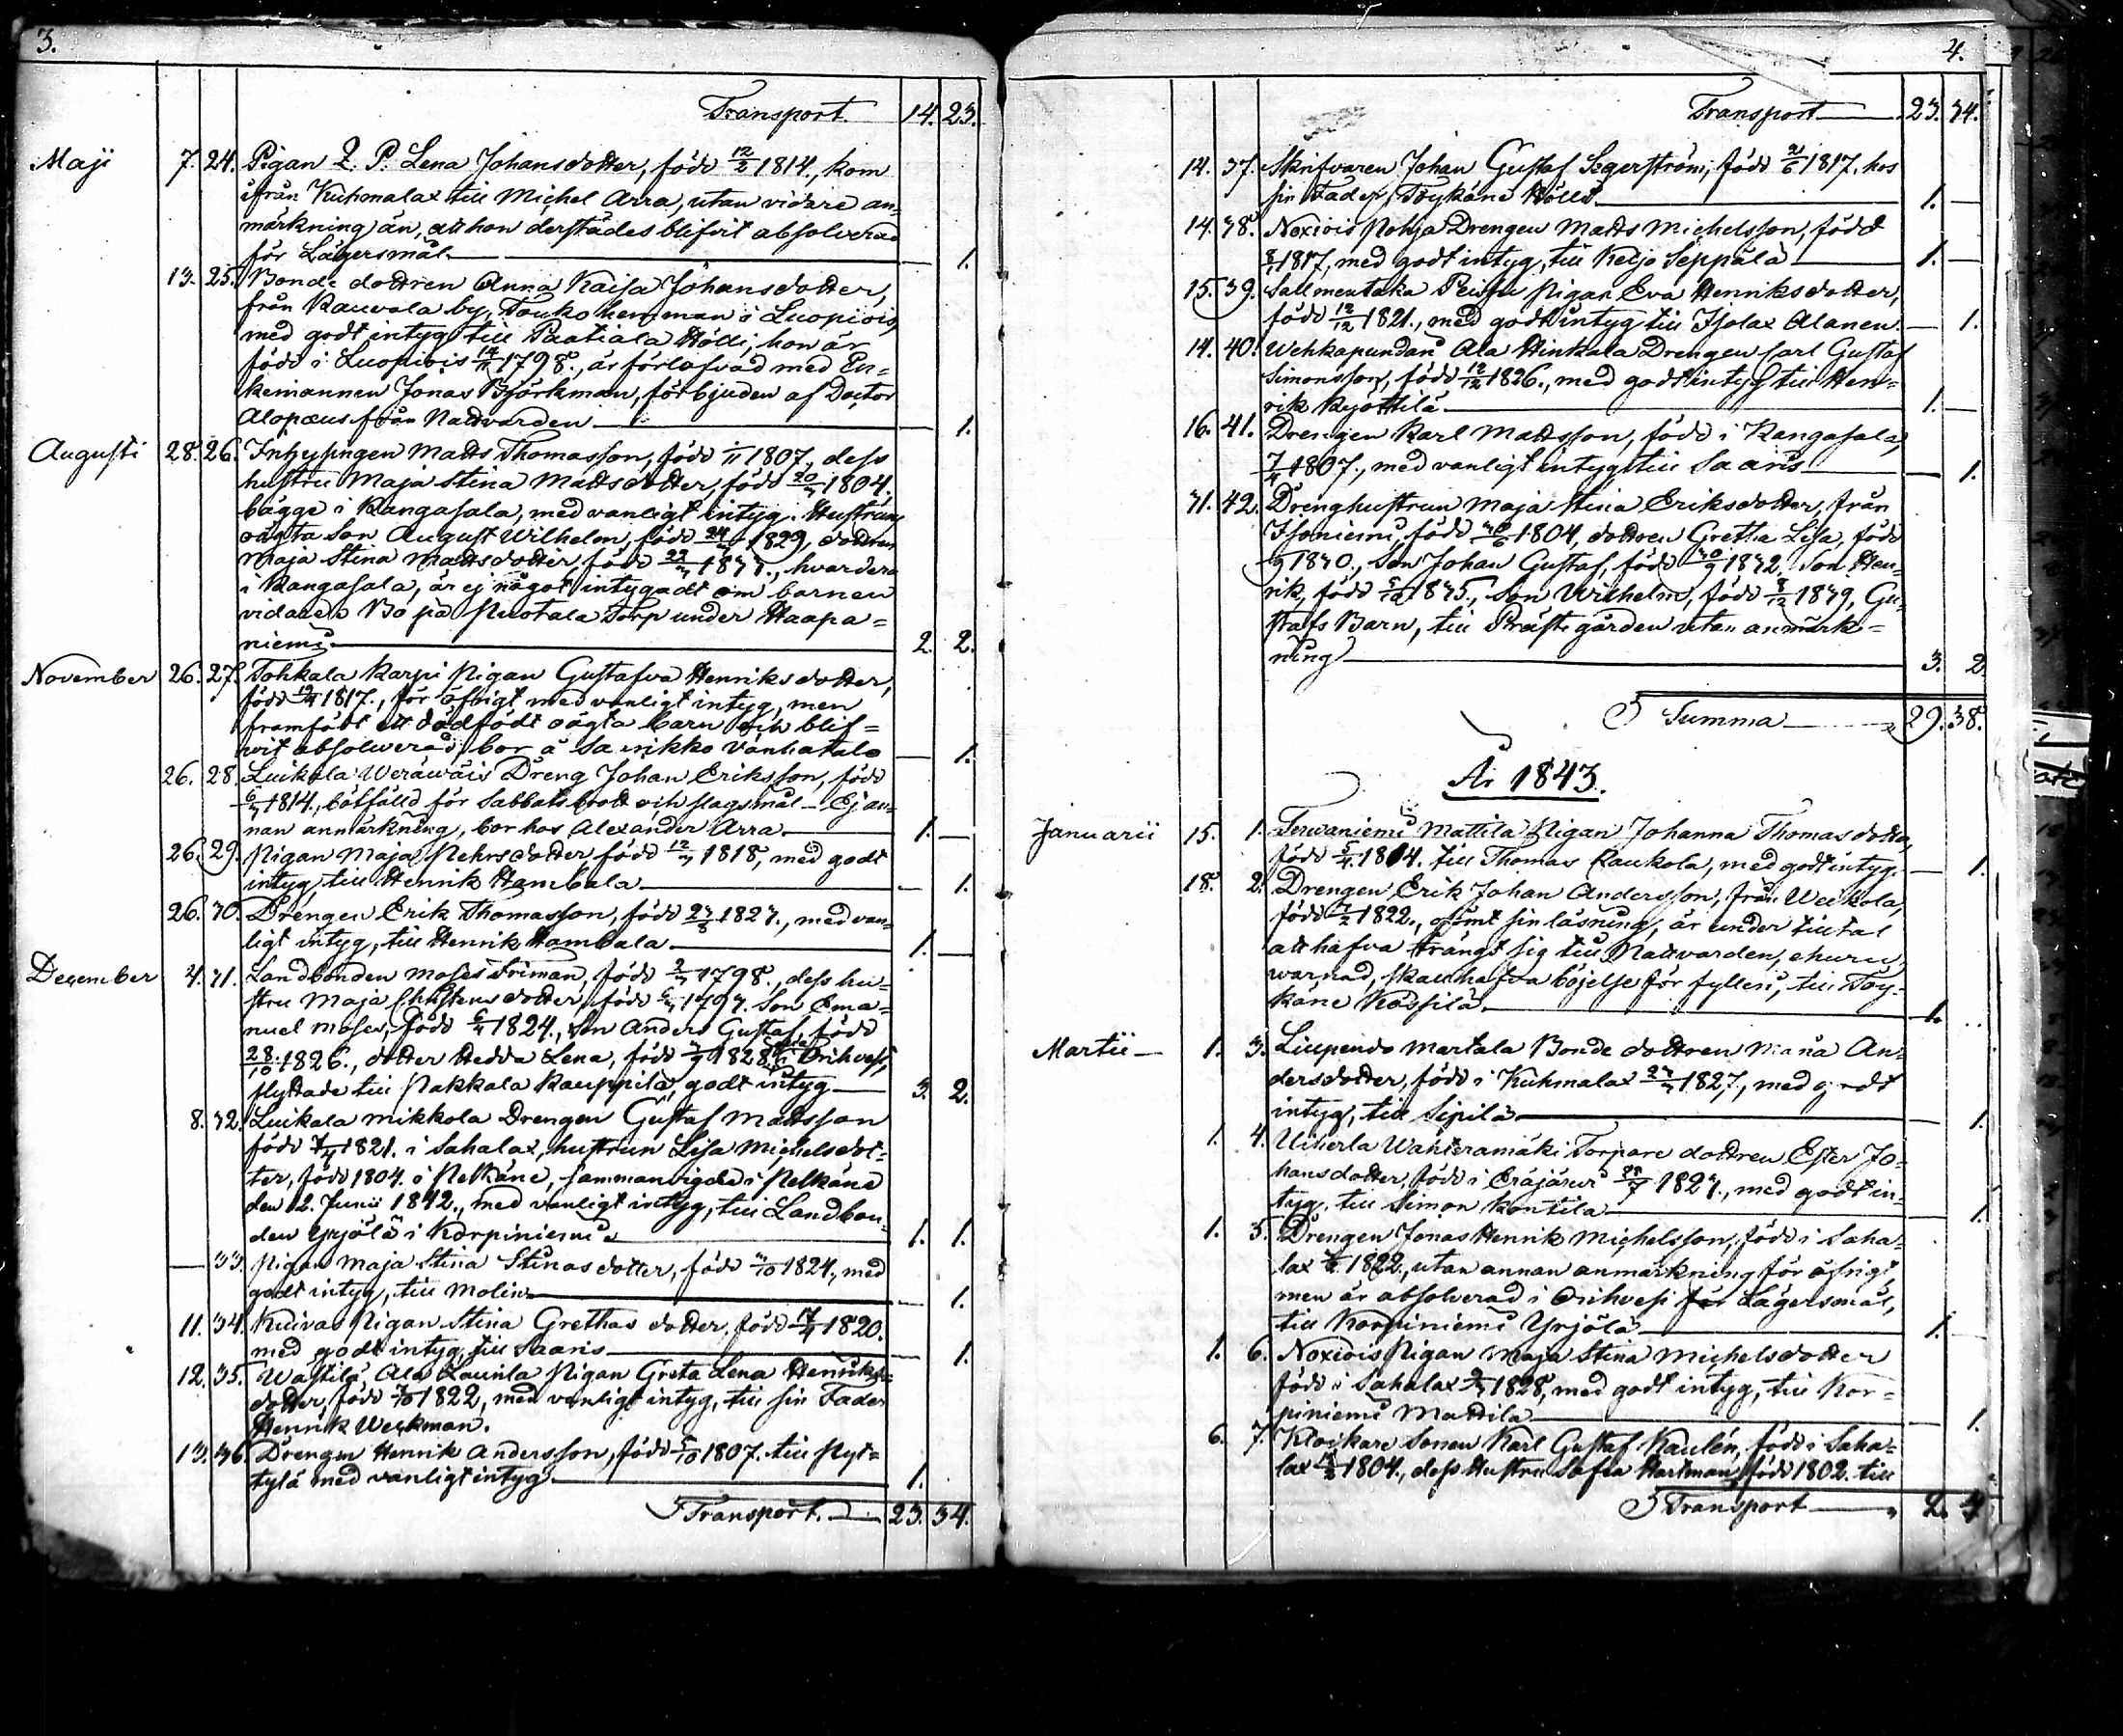 3.
Transport. 14. 23.
Maji 7. 24. Pigan Q. P. Lena Johansdotter, född 12/2 1814, kom
ifrån Kuhmalax till Michel Arra, utan vidare an=
märkning än, att hon derstädes blifvit absolverad
för Lägersmål. — 1.
13. 25. Bonde dottren Anna Kaisa Johansdotter,
från Rauvola by, Touko hemman i Luopiois,
med godt intyg till Paatiala Hölli, hon är
född i Luopiois 1798., är förlofvad med En=
kemannen Jonas Björkman, förbjuden af Doctor
Alopæus från Nattvarden. — 1.
Augusti 28. 26. Inhysingen Matts Thomasson, född 1807, dess
hustru Maja Stina Mattsdotter, född 1804,
bägge i Kangasala, med vanligt intyg. Hustruns
oägta son August Wilhelm, född 1829, dottren
Maja Stina Mattsdotter, född hvardera
i Kangasala, är ej något intygadt om barnen
vidare. Bo på Ruotala Torp under Haapa=
niemi. 2. 2.
November 26. 27. Tohkala Karpi Pigan Gustafva Henriksdotter,
född 1817., för öfrigt med vanligt intyg, men
framfödt ett dödfödt oägta barn och blif=
vit absolverad, bor å Saarikko Vanhatalo — 1.
26. 28. Luikala Weräwäis Dreng Johan Eriksson, född
1814., bötfälld för Sabbatsbrott och slagsmål — Ej an=
nan anmärkning, bor hos Alexander Arra. 1. —
26. 29. Pigan Maja Pehrsdotter, född 1818, med godt
intyg till Henrik Hambala — 1.
26. 30. Drengen Erik Thomasson, född 1823., med van=
ligt intyg, till Henrik Hambala. 1. —
December 4. 31. Landbonden Moses Friman, född 1798., dess hu=
stru Maja Christensdotter, född Son Ema=
nuel Moses, född 1824., Son Anders Gustaf, född
28/10 1826., dotter Hedda Lena, född 1828, i Orihvesi,
flyttade till Pakkala Kauppila, godt intyg — 3. 2.
8. 32. Luikala Mikkola Drengen Gustaf Mattsson
född 1821. i Sahalax, hustrun Lisa Michelsdot=
ter, född 1804. i Pelkäne, sammanvigde i Pelkäne
den 12. Junii 1842., med vanligt intyg, till Landbon=
den Yrjölä i Korpiniemi. 1. 1.
— 33. Pigan Maja Stina Stinasdotter, född 1824., med
godt intyg, till Molin. — 1.
11. 34. Pigan Stina Grethas dotter, född 1820.
med godt intyg, till Saaris — 1.
12. 35. Wästilä, Ala Launla Pigan Greta Lena Henriks=
dotter, född 1822, med vanligt intyg, till sin Fader
Henrik Weckman.
13. 36. Drengen Henrik Andersson, född 1807. till Pyt=
tylä med vanligt intyg. 1.
Transport. 23. 34.
4.
Transport 23. 34.
14. 37. Skrifvaren Johan Gustaf Segerström, född 2/6 1817. hos
sin Fader, Töykäne Hölli. 1. —
14. 38. Noxiois Pohja Drengen Matts Michelsson, född
1817, med godt intyg, till Keljo Seppälä 1. —
15. 39. Sallmentaka Pigan Eva Henriksdotter,
född 12/12 1821., med godt intyg till Isolax Alanen. — 1.
14. 40. Wehkapundan Ala Hinkala Drengen Carl Gustaf
Simonsson, född 12/12 1826., med godt intyg till Hen=
rik Kyöttilä. 1. —
16. 41. Drengen Karl Mattsson, född i Kangasala,
1807., med vanligt intyg till Saaris — 1.
31. 42. Drenghustrun Maja Stina Eriksdotter, från
Isoniemi, född 1804, dottren Gretha Lisa, född
1830., Son Johan Gustaf, född 1832. Son Hen=
rik, född 1835., Son Wilhelm, född 8/12 1839, Gu=
stafs Barn, till Prästegården utan anmärk=
ning 3. 2.
Summa 29. 38.
År 1843.
Januarii 15. 1. Terwaniemi Mattila Pigan Johanna Thomasdotter,
född 1814. till Thomas Raukola, med godt intyg. — 1.
18. 2. Drengen Erik Johan Andersson, från Weikola,
född 1822., glömt sin läsning, är under tilltal
att hafva trängt sig till Nattvarden, ehuru
warnad, skall hafva böjelse för fylleri, till Töy=
käne Kossila. 1.
Martii — 1. 3. Liupendo Martala Bonde dottren Maria An=
dersdotter, född i Kuhmalax 1827, med godt
intyg, till Sipilä — 1.
1. 4. Uiherla Wahteramäki Torpare dottren Ester Jo=
hansdotter, född i Eräjärvi med godt in=
tyg, till Simon Kontila — 1.
1. 5. Drengen Jonas Henrik Michelsson, född i Saha=
lax 1822., utan annan anmärkning för öfrigt,
men är absolverad i Orihvesi för Lägersmål,
till Korpiniemi Yrjölä 1. —
1. 6. Noxiois Pigan Maja Stina Michelsdotter
född i Sahalax 1828, med godt intyg, till Kor=
piniemi Mattila — 1.
6. 7. Klockare Sonen Karl Gustaf Kaulén, född i Saha=
lax 1804., dess Hustru Sofia Hartman, född 1802. till
Transport 2. 4